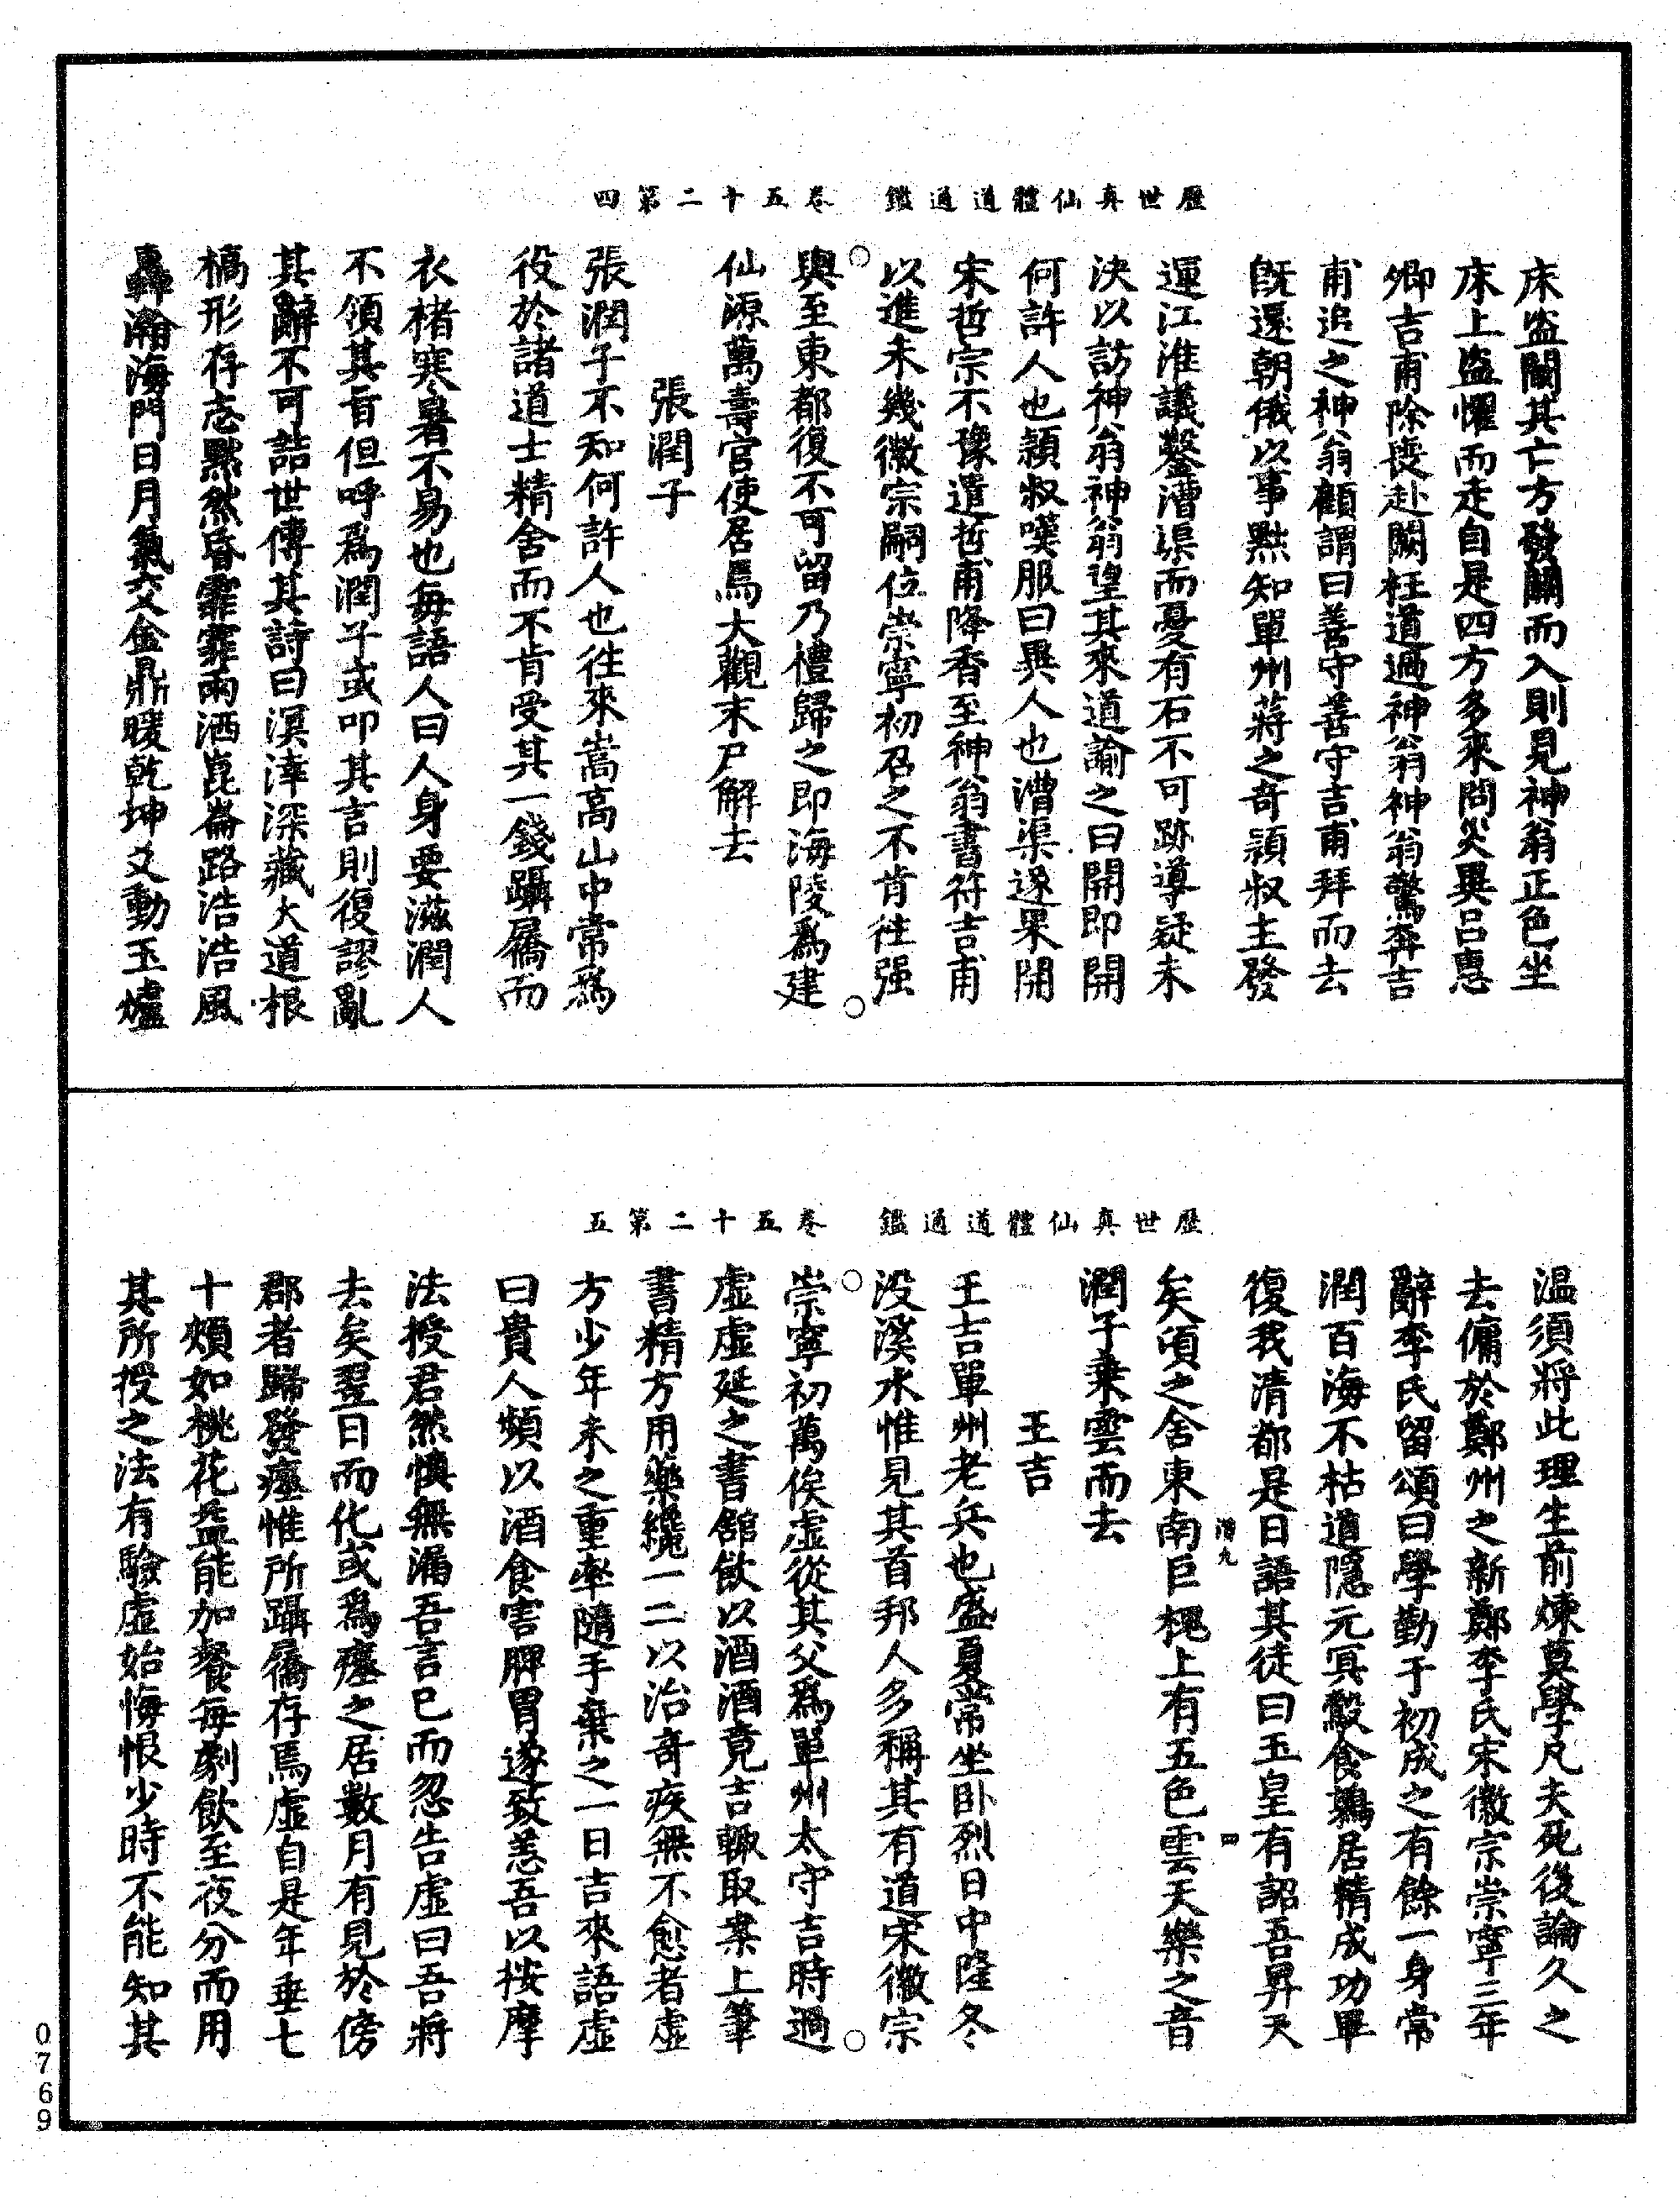 歷世真仙體道通鑑　卷五十二第四
床盗闞其亡方發關而入則見神翁正色坐
床上盗懼而走自是四方多來問災異吕惠
卿吉甫除喪赴闕枉道過神翁神翁驚奔吉
甫追之神翁顧謂曰善守善守吉甫拜而去
旣還朝俄以事黜知單州蔣之奇頴叔主發
運江淮議鑿漕渠而憂有石不可跡導疑未
決以訪神翁神翁望其來道諭之曰開即開
何許人也頴叔嘆服曰異人也漕渠遂果開
宋哲宗不豫遣哲甫降香至神翁書符吉甫
以進未幾徽宗嗣位崇寧初召之不肯往强
輿至東都復不可留乃禮歸之即海陵爲建
仙源萬壽宫使居焉大觀末尸解去
張潤子
張潤子不知何許人也往來嵩高山中常爲
役於諸道士精舍而不肯受其一錢躡屩而
衣楮寒暑不易也每語人曰人身要滋潤人
不領其旨但呼爲潤子或叩其言則復謬亂
其辭不可詰世傳其詩曰溟涬深藏大道根
槁形存志黙然昏霏霏雨洒崑崙路浩浩風
轟瀚海門日月氣交金鼎暖乾坤爻動玉爐
歷世真仙體道通鑑　卷五十二第五
温須將此理生前煉莫學凡夫死後論久之
去傭於鄭州之新鄭李氏宋徽宗崇寧三年
辭李氏留頌曰學勤于初成之有餘一身常
潤百海不枯道隱元㝠鷇食鶉居精成功畢
復我清都是日語其徒曰玉皇有詔吾昇天
潛九
四
矣頃之舍東南巨槐上有五色雲天樂之音
潤子乗雲而去
王吉
王吉單州老兵也盛夏常坐卧烈日中隆冬
没溪水惟見其首邦人多稱其有道宋徽宗
崇寧初萬俟虚從其父爲單州太守吉時過
虚虚延之書館飲以酒酒竟吉輙取案上筆
書精方用藥纔一二以治奇疾無不愈者虚
方少年未之重率隨手棄之一日吉來語虚
曰貴人頻以酒食害脾胃遂致恙吾以按摩
法授君然慎無漏吾言已而忽告虚曰吾將
去矣翌日而化或爲瘞之居數月有見於傍
郡者歸發瘞惟所躡屩存焉虚自是年垂七
十頰如桃花益能加餐每劇飲至夜分而用
其所授之法有驗虚始悔恨少時不能知其
0769